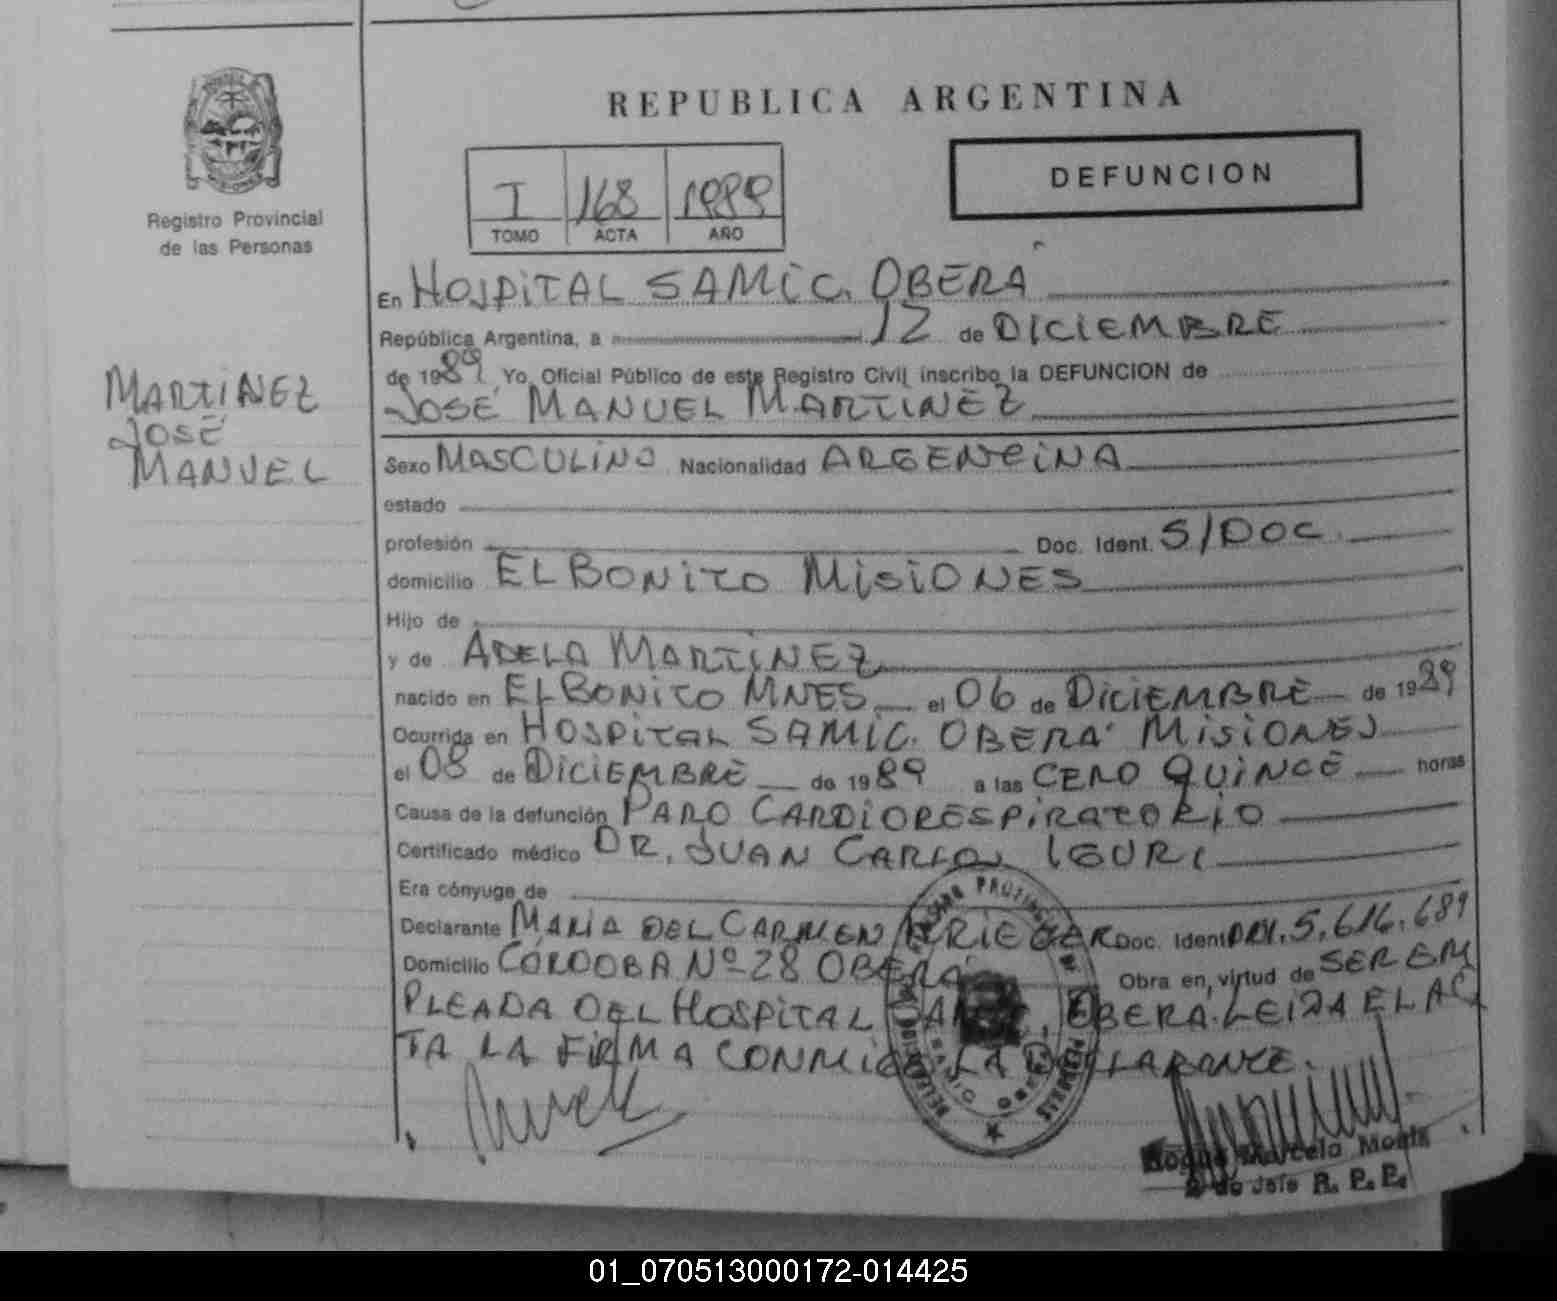 REPUBLICA ARGENTINA
DEFUNCION
I 168 1989
TOMO ACTA AÑO
Registro Provincial
de las Personas
MARTINEZ
JOSÉ
MANUEL
En HOSPITAL SAMIC. OBERA
República Argentina, a 12 de DICIEMBRE
de 1989, Yo, Oficial Público de este Registro Civil inscribo la DEFUNCION de
JOSÉ MANUEL MARTINEZ
Sexo MASCULINO Nacionalidad ARGENTINA
estado
profesión Doc. Ident. S/DOC.
domicilio EL BONITO MISIONES
Hijo de
y de ADELA MARTINEZ
nacido en EL BONITO MNES el 06 de DICIEMBRE de 1989
Ocurrida en HOSPITAL SAMIC. OBERA MISIONES
el 08 de DICIEMBRE de 1989 a las CERO QUINCE horas
Causa de la defunción PARO CARDIORESPIRATORIO
Certificado médico DR. JUAN CARLOS
Era cónyuge de
Declarante MARIA DEL CARMEN Doc. Ident DNI. 5.616.689
Domicilio CORDOBA Nº 28 OBERA Obra en virtud de SER EM
PLEADA DEL HOSPITAL SAMIC. OBERA. LEIDA EL AC
TA LA FIRMA CONMIGO LA DECLARANTE.
Marcelo
2º de Jefe R. P. P.
01_070513000172-014425